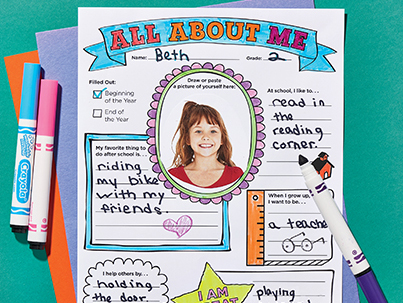 ALL ABOUT ME
Name: Beth Grade: 2
Filled Out:
Beginning
of the Year
End of
the Year
Draw or paste
a picture of yourself here:
At school, I like to...
read in
the
reading
corner.
My favorite thing to
do after school is...
riding
my bike
with my
friends.
When I grow up,
I want to be...
a teacher
I help others by...
holding
the door
I AM
GREAT
playing
Crayola